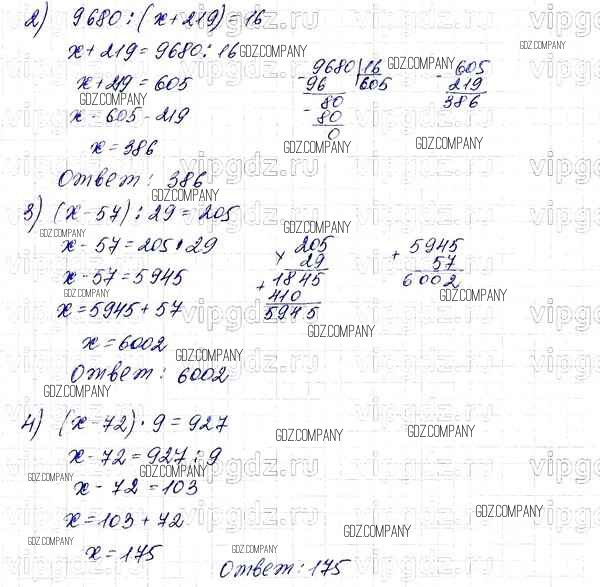 2) 9680 : (x + 219) = 16
x + 219 = 9680 : 16
x + 219 = 605
x = 605 - 219
x = 386
Ответ: 386
- 9680 | 16
96 605
- 80
80
0
- 605
219
386
3) (x - 57) : 29 = 205
x - 57 = 205 · 29
x - 57 = 5945
x = 5945 + 57
x = 6002
Ответ: 6002
× 205
29
+ 1845
410
5945
+ 5945
57
6002
4) (x - 72) · 9 = 927
x - 72 = 927 : 9
x - 72 = 103
x = 103 + 72
x = 175
Ответ: 175
GDZ.COMPANY
vipgdz.ru